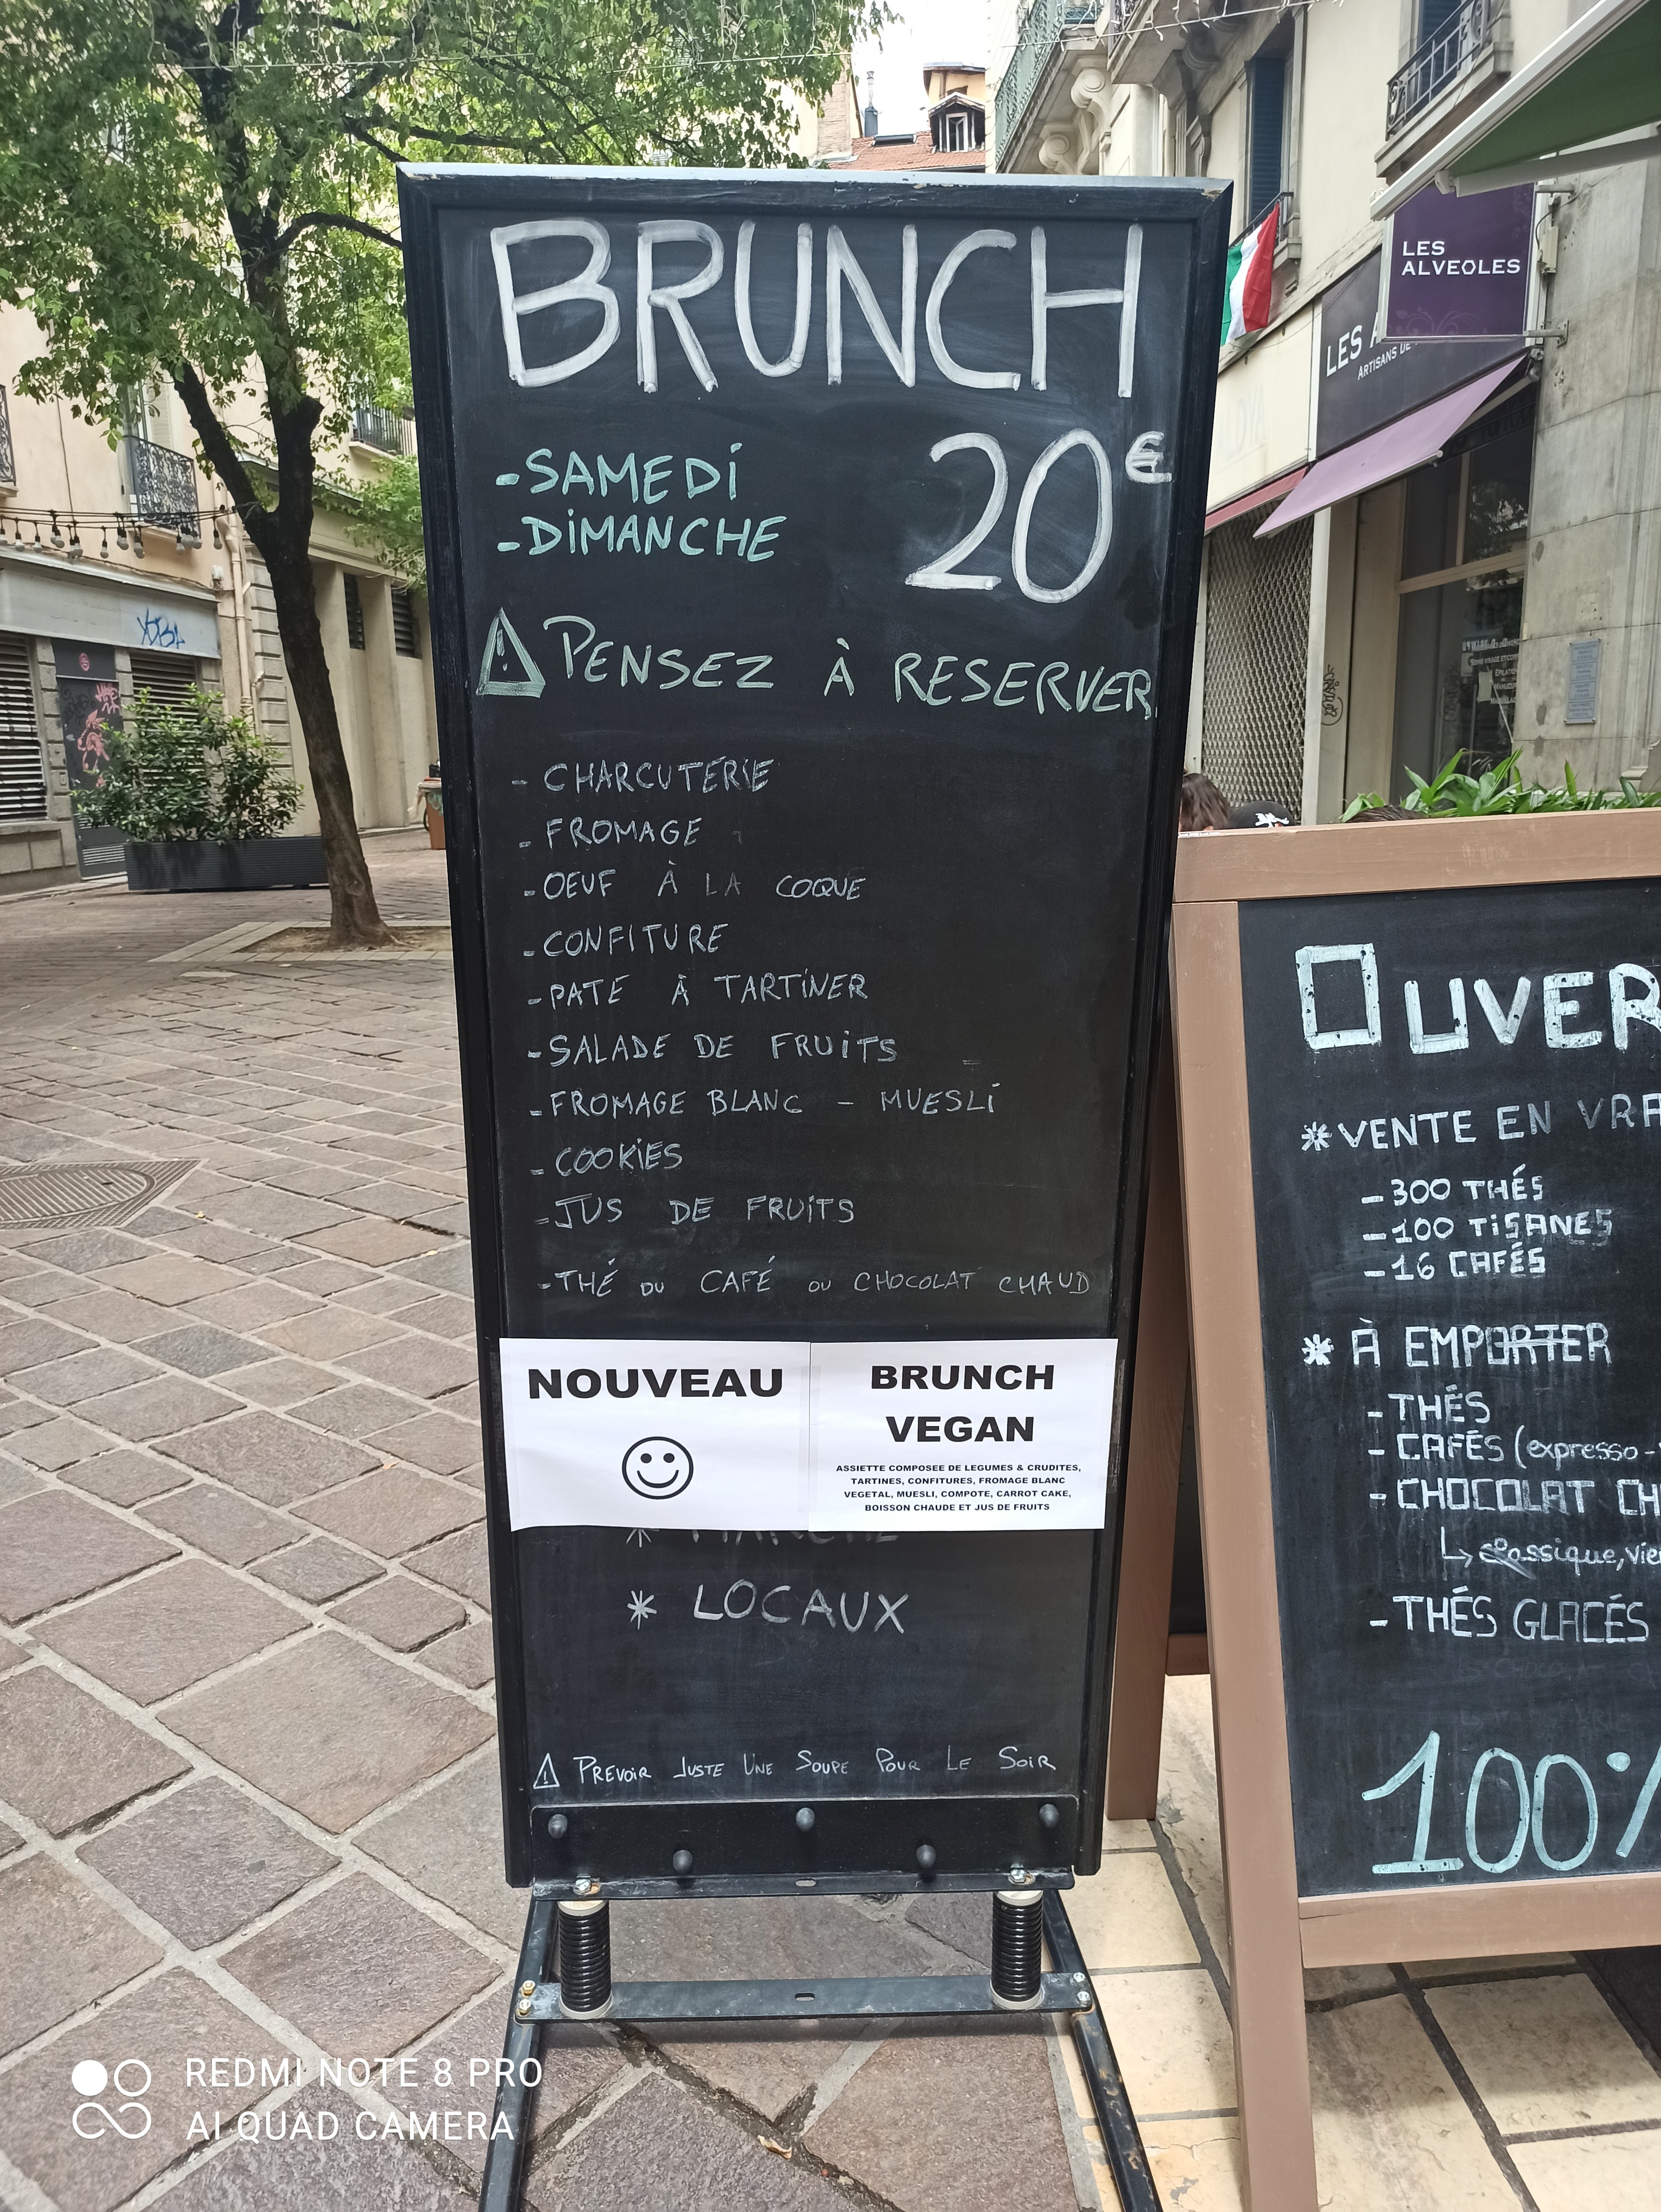 BRUNCH
- SAMEDI
- DIMANCHE
20€
⚠ PENSEZ À RESERVER
- CHARCUTERIE
- FROMAGE
- OEUF À LA COQUE
- CONFITURE
- PATE À TARTINER
- SALADE DE FRUITS
- FROMAGE BLANC - MUESLI
- COOKIES
- JUS DE FRUITS
- THÉ OU CAFÉ OU CHOCOLAT CHAUD
NOUVEAU
BRUNCH
VEGAN
ASSIETTE COMPOSEE DE LEGUMES & CRUDITES,
TARTINES, CONFITURES, FROMAGE BLANC
VEGETAL, MUESLI, COMPOTE, CARROT CAKE,
BOISSON CHAUDE ET JUS DE FRUITS
* LOCAUX
⚠ PREVOIR JUSTE UNE SOUPE POUR LE SOIR
LES
ALVEOLES
LES A
ARTISANS DE
OUVER
* VENTE EN VRA
- 300 THÉS
- 100 TISANES
- 16 CAFÉS
* À EMPORTER
- THÉS
- CAFÉS (expresso -
- CHOCOLAT CH
↳ classique, vie
- THÉS GLACÉS
100%
REDMI NOTE 8 PRO
AI QUAD CAMERA